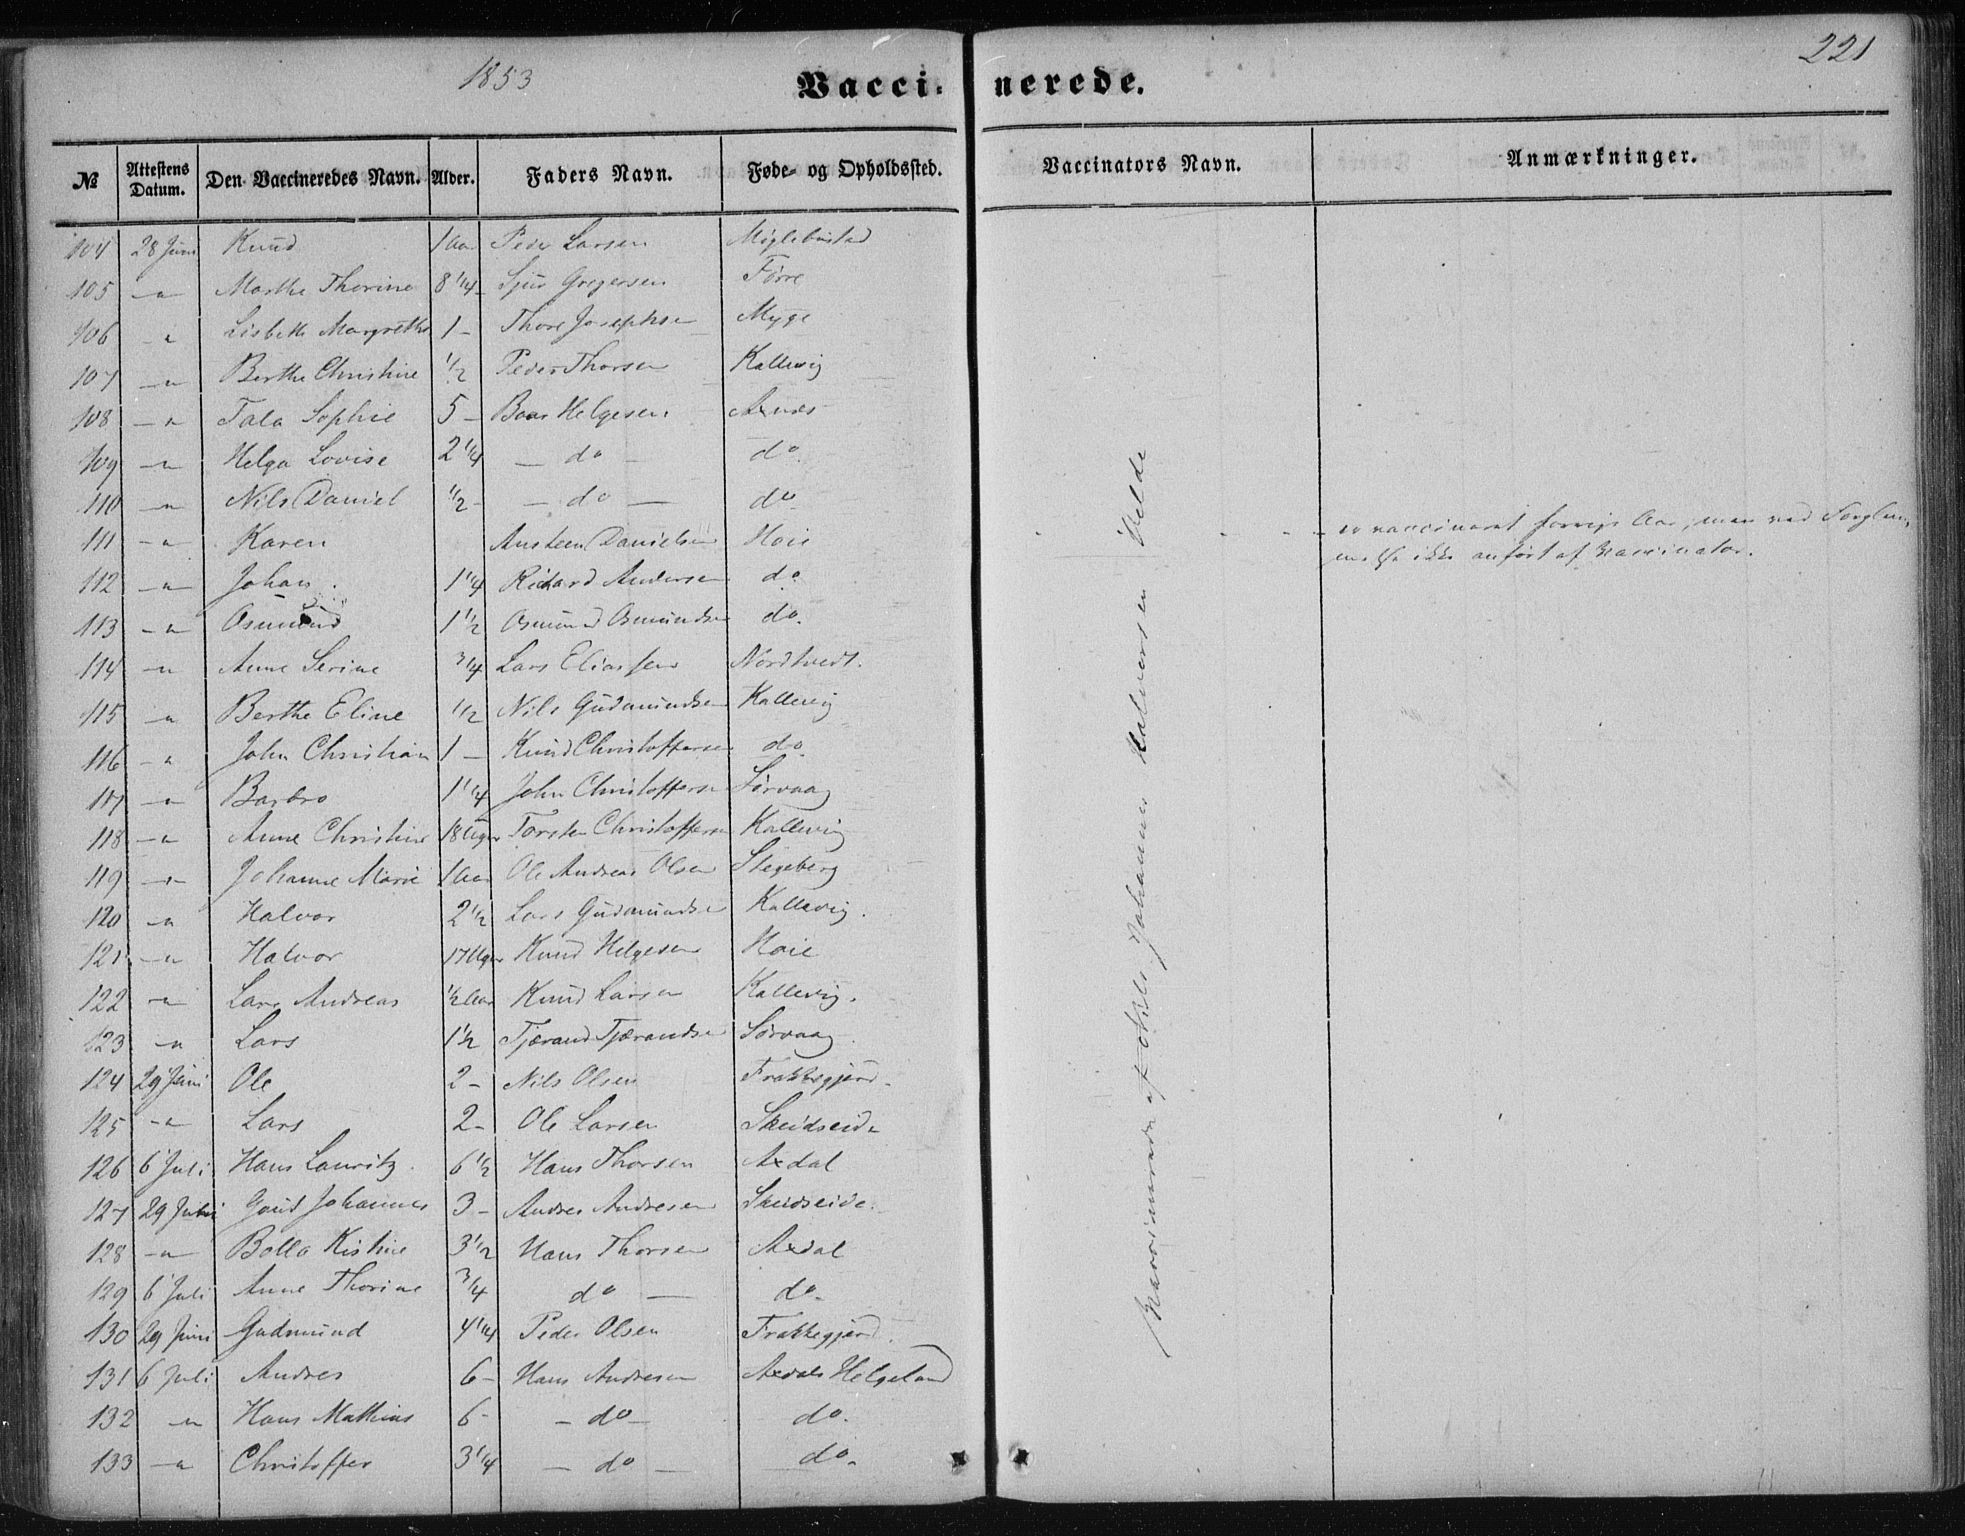 1853
Vaccinerede.
221
№ Attestens Datum. Den Vaccineredes Navn. Alder. Faders Navn. Føde- og Opholdssted. Vaccinators Navn. Anmærkninger.
104 28 Juni Knud 1 Aar Peder Larsen Møglebustad
105 -"- Marthe Thorine 8 1/4 - Sjur Gregersen Førre
106 -"- Lisbeth Margrethe 1 - Thore Josephse Myge
107 -"- Berthe Christine 1/2 Peder Thorsen Kallevig
108 -"- Tala Sophie 5 - Baar Helgesen Axnes
109 -"- Helga Lovise 2 1/4 - do - do
110 -"- Nils Daniel 1/2 - - do - do
111 -"- Karen Austeen Danielsen Hoie - er vaccineret forrige Aar, men ved
ikke anført af Vaccinator.
112 -"- Johan 1 1/4 Richard Andersen do
113 -"- Osmund 1 1/2 Osmund Osmundsen do.
114 -"- Anne Serine 3/4 Lars Eliassen Nordtvedt.
115 -"- Berthe Eline 1/2 Nils Gudmundsen Kallevig
116 -"- John Christian 1 - Knud Christoffersen do
117 -"- Barbro 1 1/4 John Christoffersen Sørvaag
118 -"- Anne Christine 18 Uger Torsten Christoffersen Kallevig
119 -"- Johanne Marie 1 Aar Ole Andreas Olsen Stegeberg
120 -"- Halvor 2 1/2 Lars Gudmundse Kallevig.
121 -"- Halvor 17 Uger Knud Helgesen Hoie
122 -"- Lars Andreas 1/2 Aar Knud Larsen Kallevig.
123 -"- Lars 1 1/2 Tjærand Tjærandse Sørvaag
124 29 Juni Ole 2 - Nils Olsen Frakkegjerd.
125 -"- Lars 2 - Ole Larsen Skeidseide
126 6 Juli Hans Lauritz. 6 1/2 Hans Thorsen Axdal
127 29 Juni Johannes 3 - Andres Andresen Skeidseide.
128 -"- Bolla Kistine 3 1/2 Hans Thorsen Axdal
129 6 Juli Anne Thorine 3/4 do - do.
130 29 Juni Gudmund 4 1/4 Peder Olsen Frakkegjerd.
131 6 Juli Andres 6 - Hans Andresen Axdals Helgeland
132 -"- Hans Mathias 6 - - do - do.
133 -"- Christoffer 3 1/4 - do - do.
Vaccinerede af Nils Johannes Halversen Velde